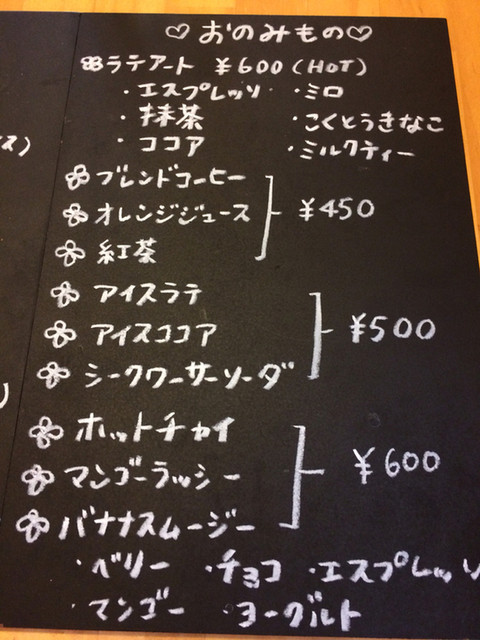 ♡おのみもの♡
ラテアート ¥600(HOT)
・エスプレッソ ・ミロ
・抹茶 ・こくとうきなこ
・ココア ・ミルクティー
ブレンドコーヒー
オレンジジュース ¥450
紅茶
アイスラテ
アイスココア ¥500
シークワーサーソーダ
ホットチャイ
マンゴーラッシー ¥600
バナナスムージー
・ベリー ・チョコ ・エスプレッソ
・マンゴー ・ヨーグルト